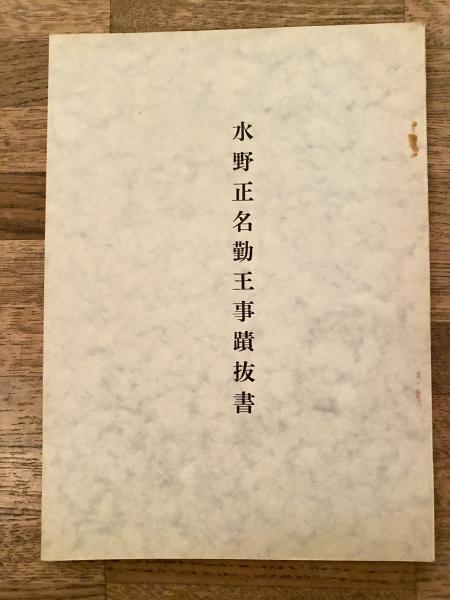 水野正名勤王事蹟抜書